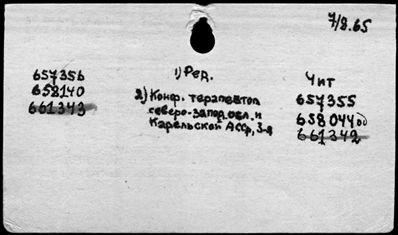 7/8.65
1) Ред.
657356
658140
661343
2) Конф. терапевтов
северо-запад. обл. и
Карельской АССР, 3-я
Чит
657355
658044
661342